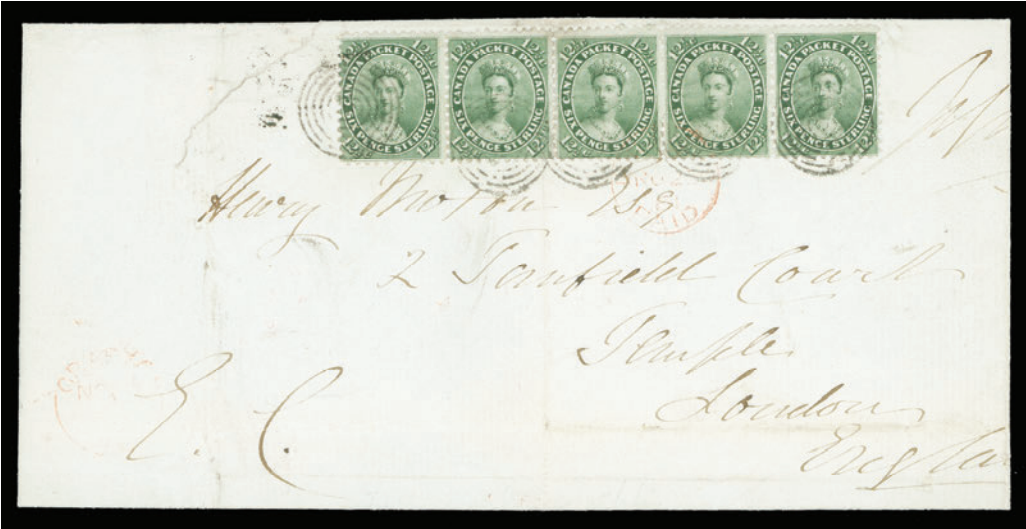 12½c CANADA PACKET POSTAGE 12½c SIX PENCE STERLING 12½c 12½c
12½c CANADA PACKET POSTAGE 12½c SIX PENCE STERLING 12½c 12½c
12½c CANADA PACKET POSTAGE 12½c SIX PENCE STERLING 12½c 12½c
12½c CANADA PACKET POSTAGE 12½c SIX PENCE STERLING 12½c 12½c
12½c CANADA PACKET POSTAGE 12½c SIX PENCE STERLING 12½c 12½c
PAID
Henry Moton Esq
2 Tanfield Court
Temple
London
E. C.
Engla